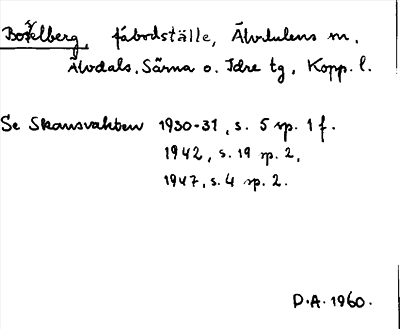 Boxelberg, fäbodställe, Älvdalens m,
Älvdals, Särna o. Idre tg, Kopp. l.
Se Skansvakten 1930-31, s. 5 sp. 1 f.
1942, s. 19 sp. 2,
1947, s. 4 sp. 2.
D.A. 1960.